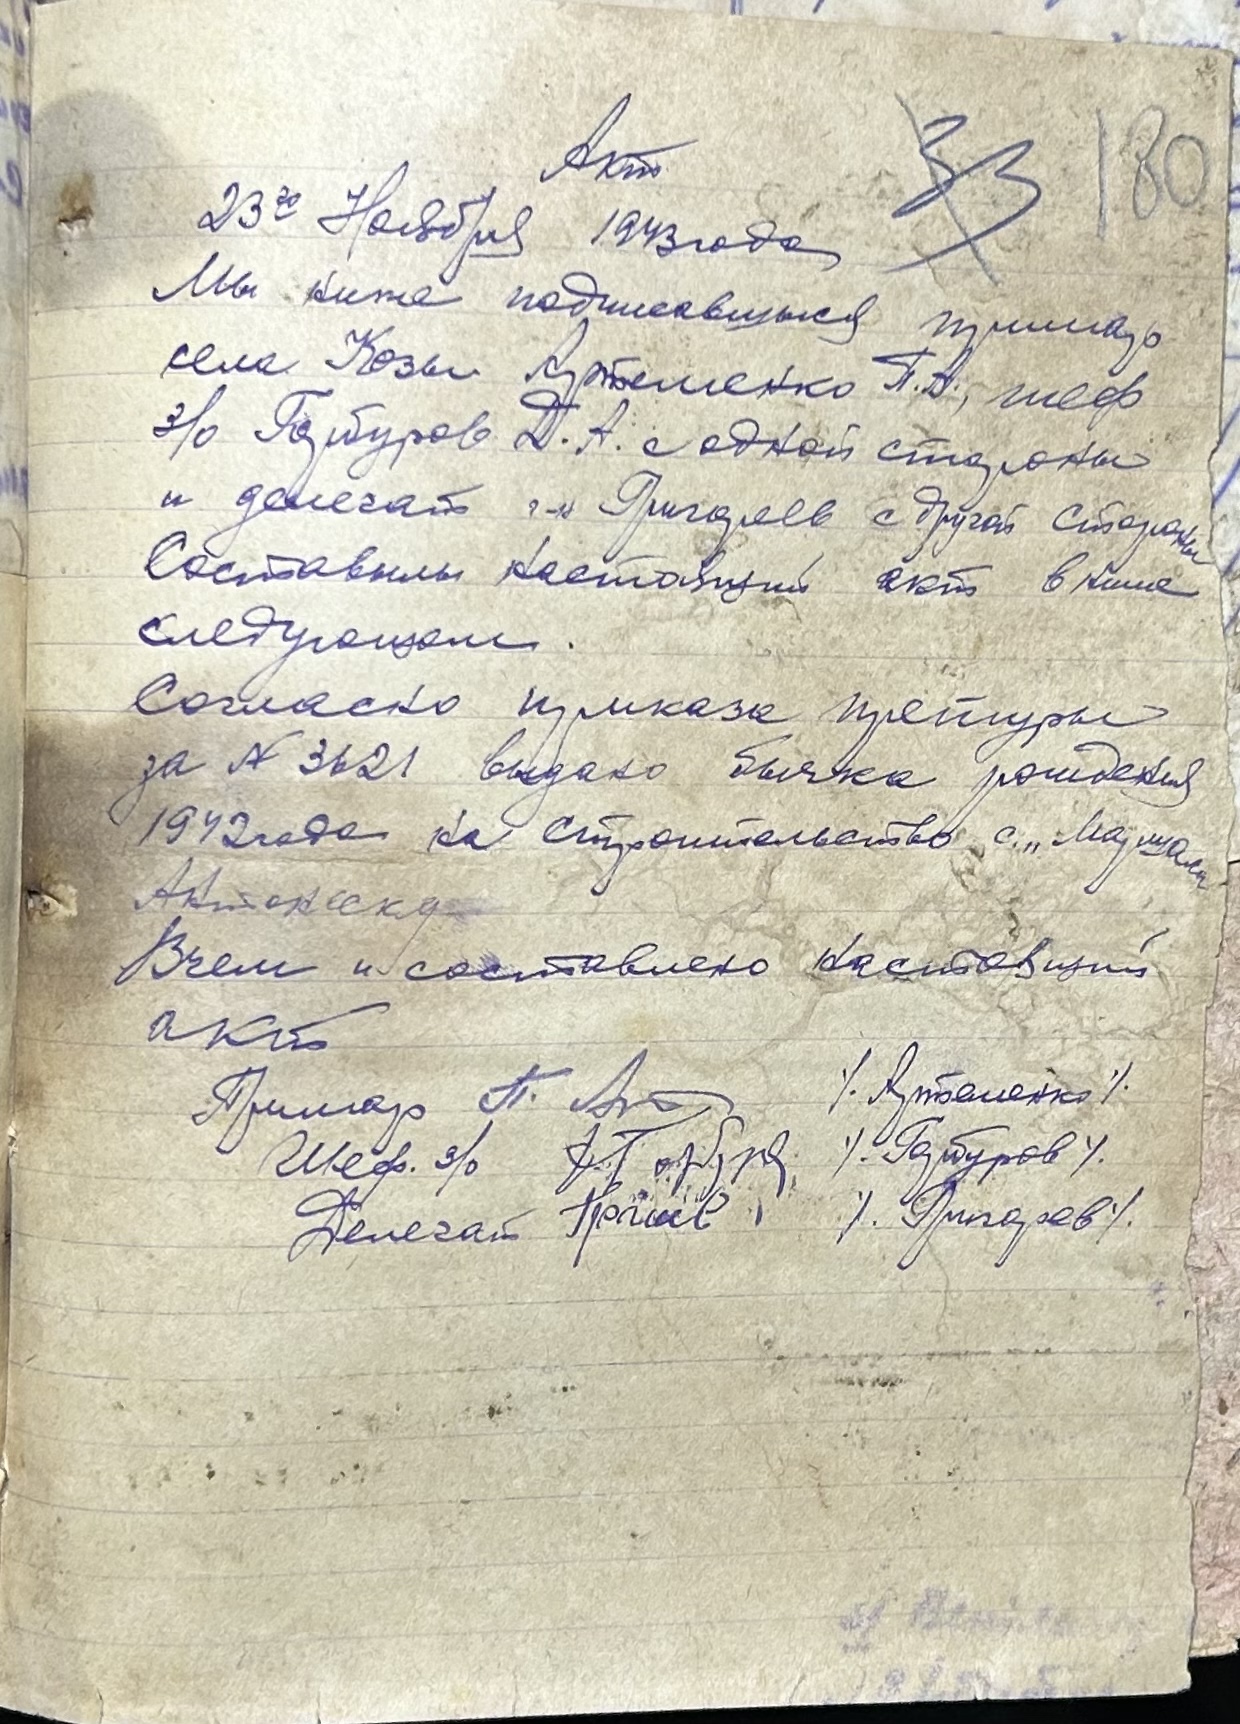 33 180
Акт
23го Ноября 1943 года
Мы ниже подписавшыися примар
села Козы Артеменко П.А., шеф
з/о Гарбуров Д.А. с одной стороны
и делегат г-н Григореев с другой стороны
Составылы настоящий акт в ниже
следующом.
Согласно приказа претуры
за N 3621 выдано бычка рождения
1942 года на строительство с. „Маршала
Антонеску
Вчем и составлено настоящий
акт
Примар П. Арт ٪. Артеменко ٪.
Шеф. з/о ٪. Гарбуров ٪.
Делегат ٪. Григорев ٪.